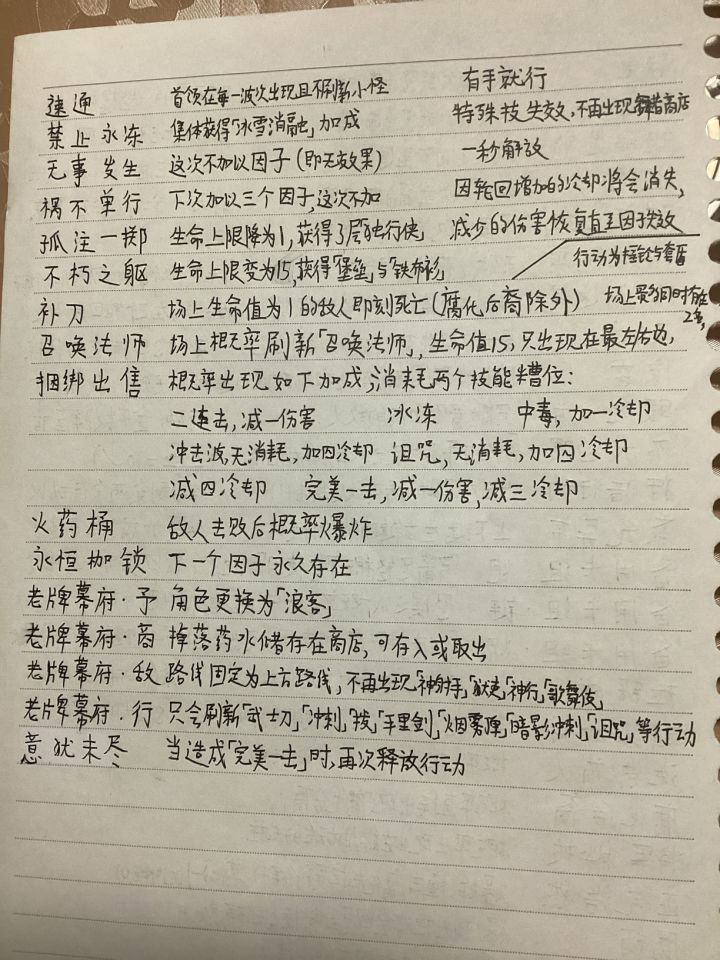 速通 首领在每一波次出现且不刷新小怪 有手就行
禁止永冻 集体获得「冰雪消融」加成 特殊技失效,不再出现舞者商店
无事发生 这次不加以因子(即无效果) 一秒解放
祸不单行 下次加以三个因子,这次不加 因轮回增加的冷却将会消失,
孤注一掷 生命上限降为1,获得了层独行侠 减少的伤害恢复直至因子失效
不朽之躯 生命上限变为15,获得「堡垒」与「铁布衫」 行动为
补刀 场上生命值为1的敌人即刻死亡(腐化后裔除外) 场上最多同时存在
2名,
召唤法师 场上概率刷新「召唤法师」,生命值15,只出现在最左右边,
捆绑出售 概率出现如下加成,消耗两个技能槽位:
二连击,减一伤害 冰冻 中毒,加一冷却
冲击波,无消耗,加四冷却 诅咒,无消耗,加四冷却
减四冷却 完美一击,减一伤害,减三冷却
火药桶 敌人击败后概率爆炸
永恒枷锁 下一个因子永久存在
老牌幕府·予 角色更换为「浪客」
老牌幕府·商 掉落药水储存在商店,可存入或取出
老牌幕府·敌 路线固定为上方路线,不再出现「神射手」「神行」「歌舞伎」
老牌幕府·行 只会刷新「武士刀」「冲刺」「手里剑」「烟雾弹」「暗影冲刺」「诅咒」等行动
意犹未尽 当造成「完美一击」时,再次释放行动